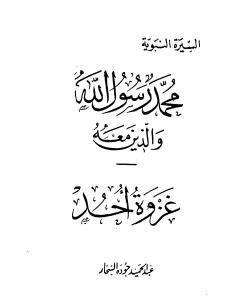 السيرة النبوية
محمد رسول الله
والذين معه
غزوة أحد
عبد الحميد جودة السحار